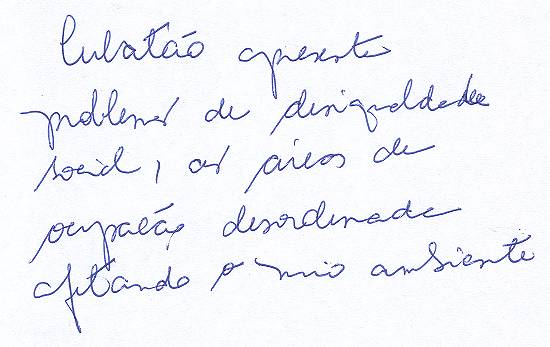 Cubatão apresenta
problemas de desigualdade
social, as áreas de
ocupação desordenada
afetando o meio ambiente